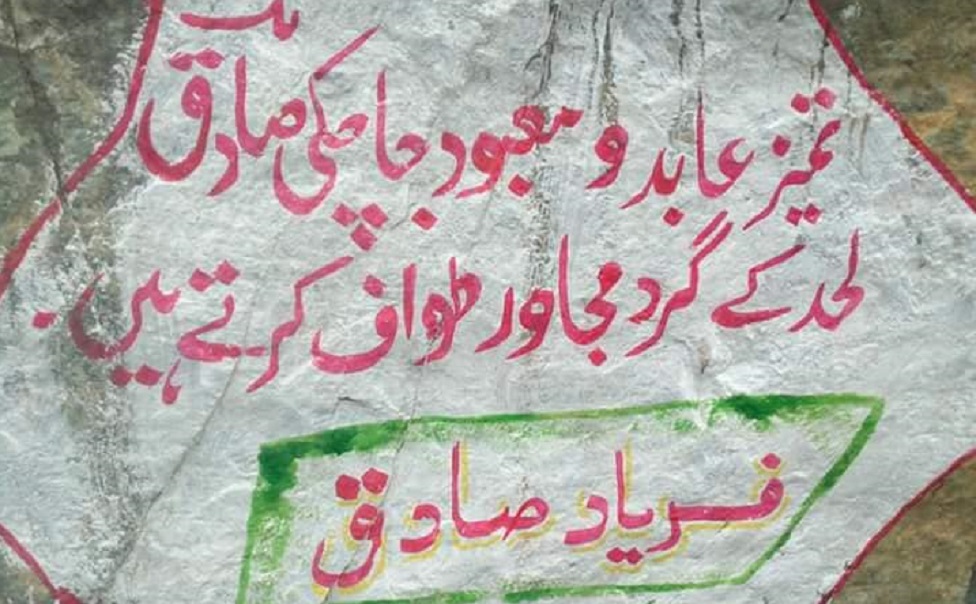 تمیز عابد و معبود جا چکی صادق
لحد کے گرد مجاور طواف کرتے ہیں
فریاد صادق